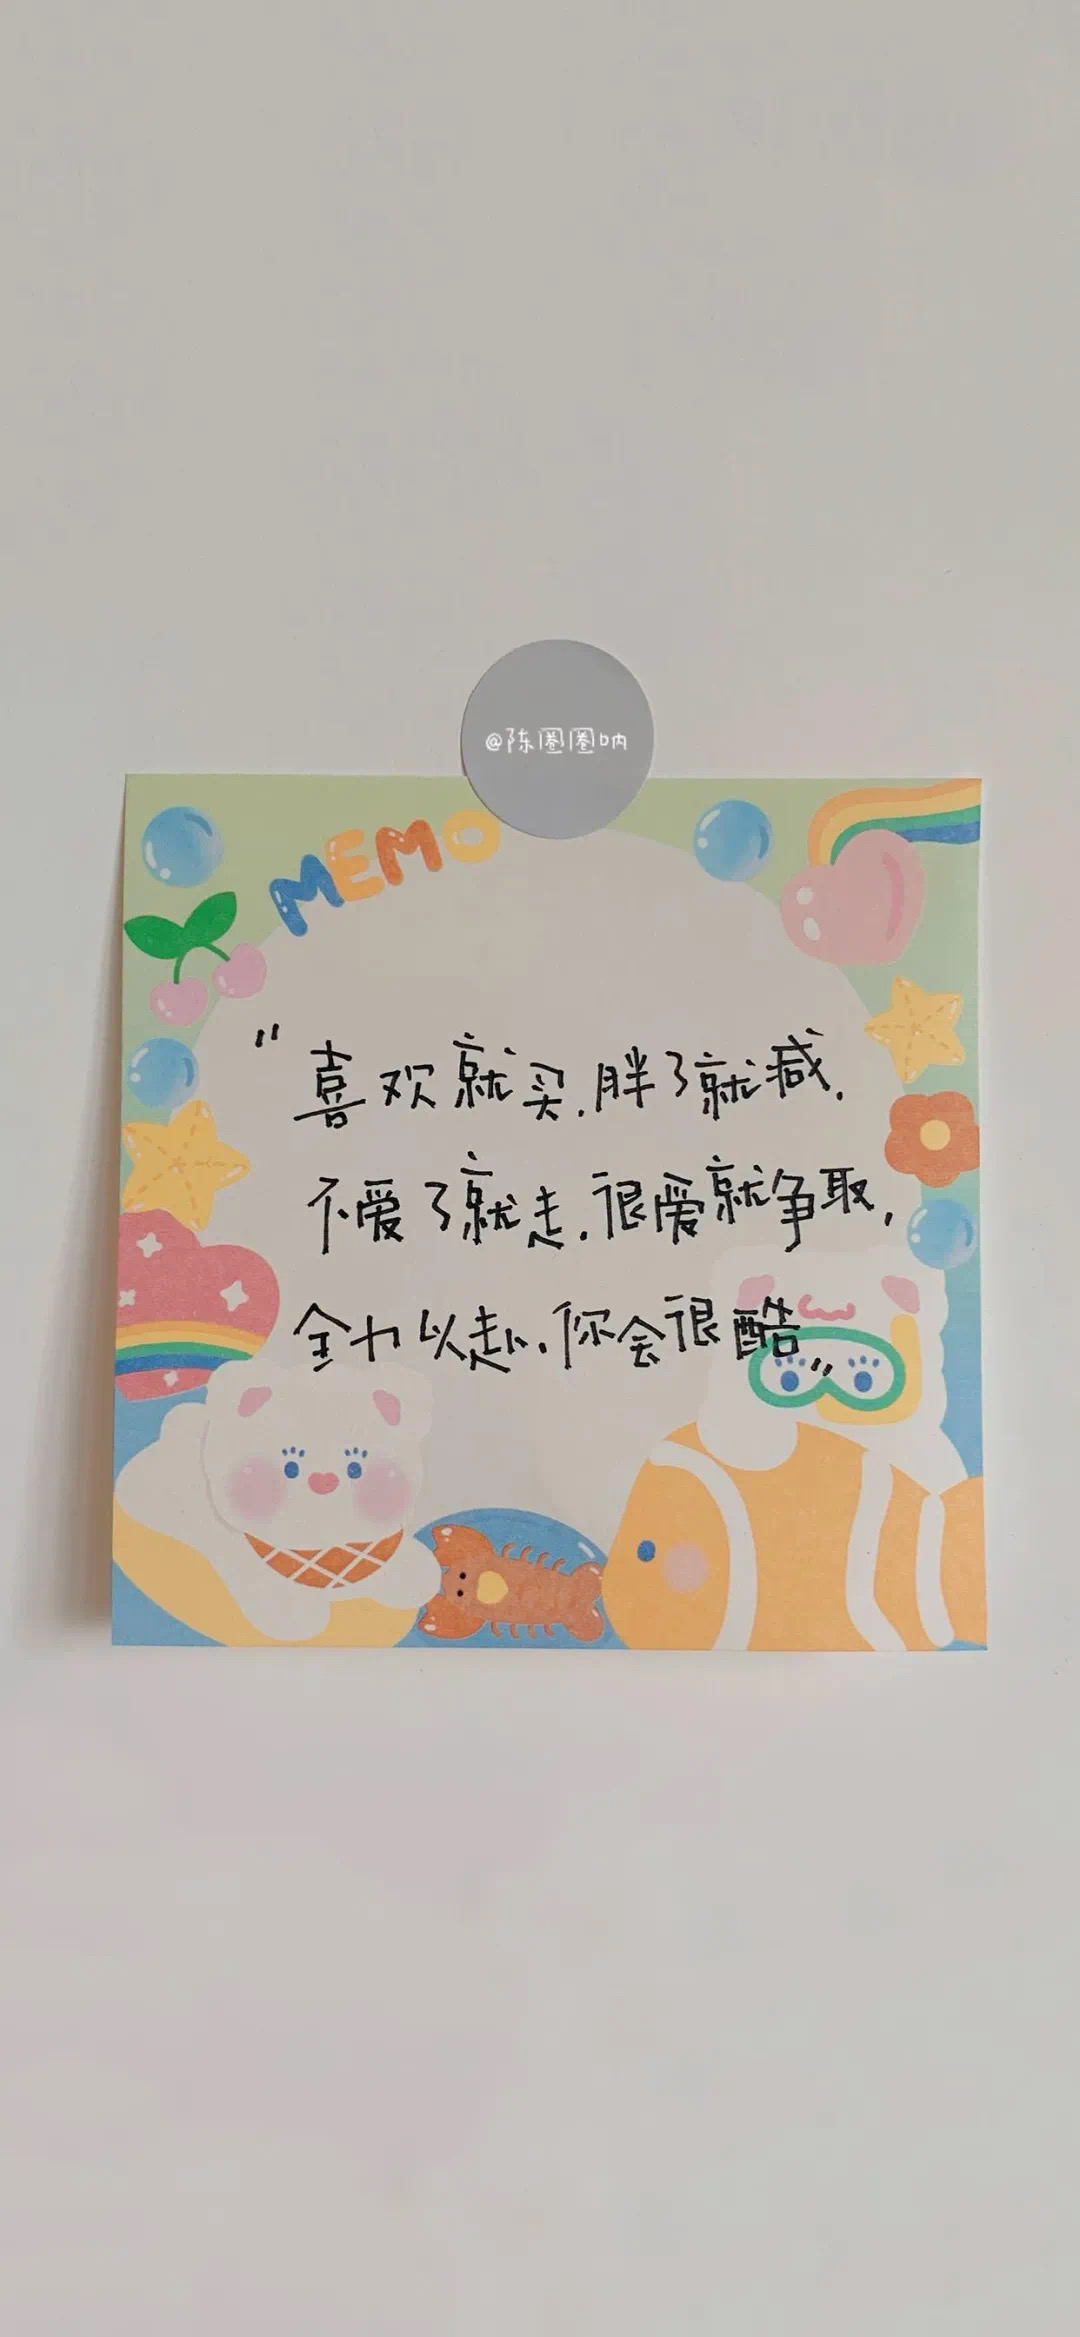 @陈圈圈呐
MEMO
"喜欢就买.胖了就减.
不爱了就走.很爱就争取,
全力以赴.你会很酷"